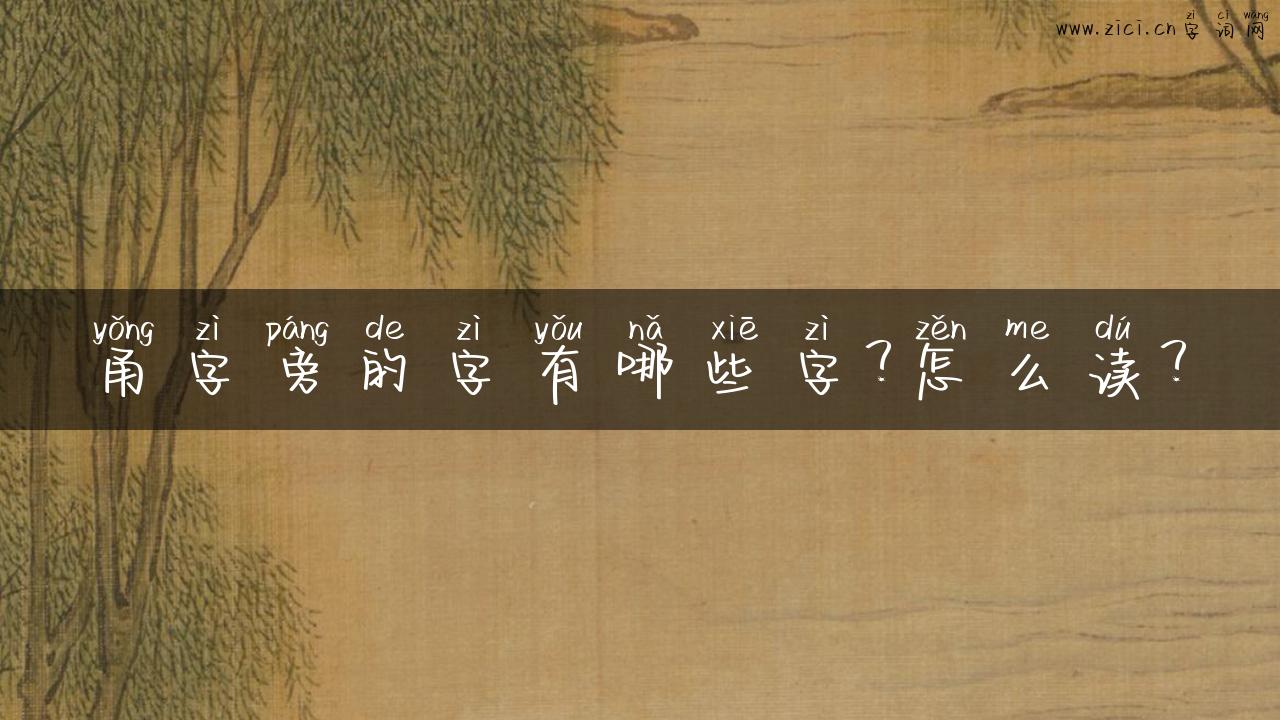 zì cí wǎng
www.zici.cn字词网
yǒng zì páng de zì yǒu nǎ xiē zì zěn me dú
甬字旁的字有哪些字?怎么读?